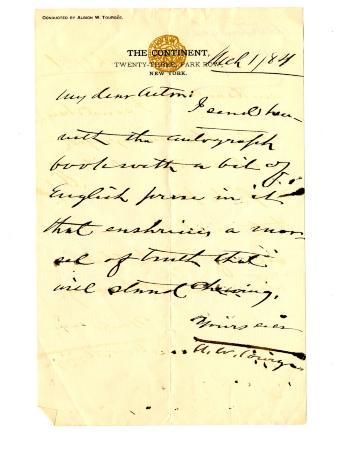 CONDUCTED BY ALBION W. TOURGÉE.
THE CONTINENT,
TWENTY-THREE PARK ROW,
NEW YORK.
Mch 1/84
My dear Acton:
I send here-
with the autograph
book with a bit of
English prose in it
that enshrines a mor-
sel of truth that
will stand chewing.
Yours ever
A. W. Tourgee